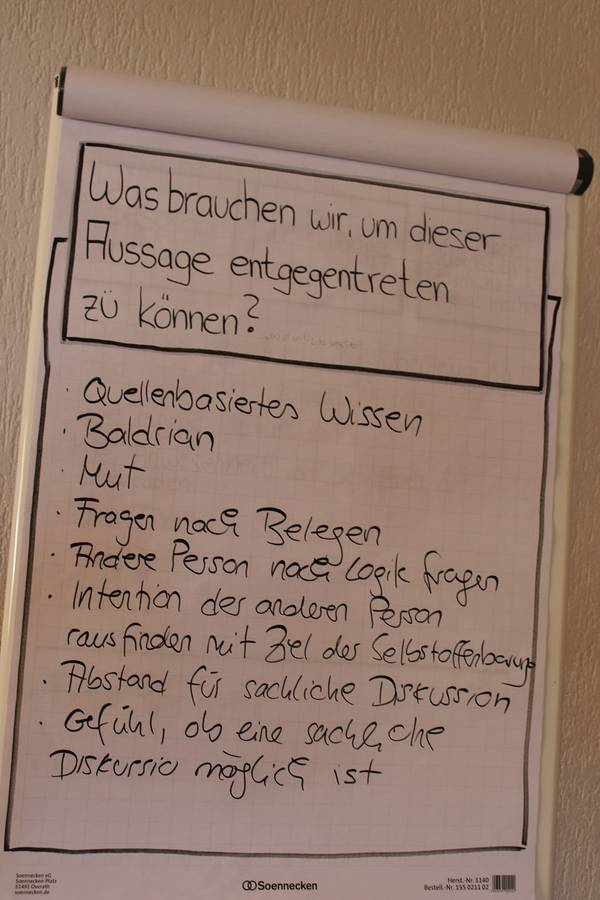 Was brauchen wir, um dieser
Aussage entgegentreten
zü können?
· Quellenbasiertes Wissen
· Baldrian
· Mut
· Fragen nach Belegen
· Andere Person nach Logik fragen
· Intention der anderen Person
rausfinden mit Ziel der Selbstoffenbarung
· Abstand für sachliche Diskussion
· Gefühl, ob eine sachliche
Diskussio möglich ist
Soennecken eG
Soennecken-Platz
51491 Overath
soennecken.de
Soennecken
Herst.-Nr. 1140
Bestell.-Nr. 155 0211 02